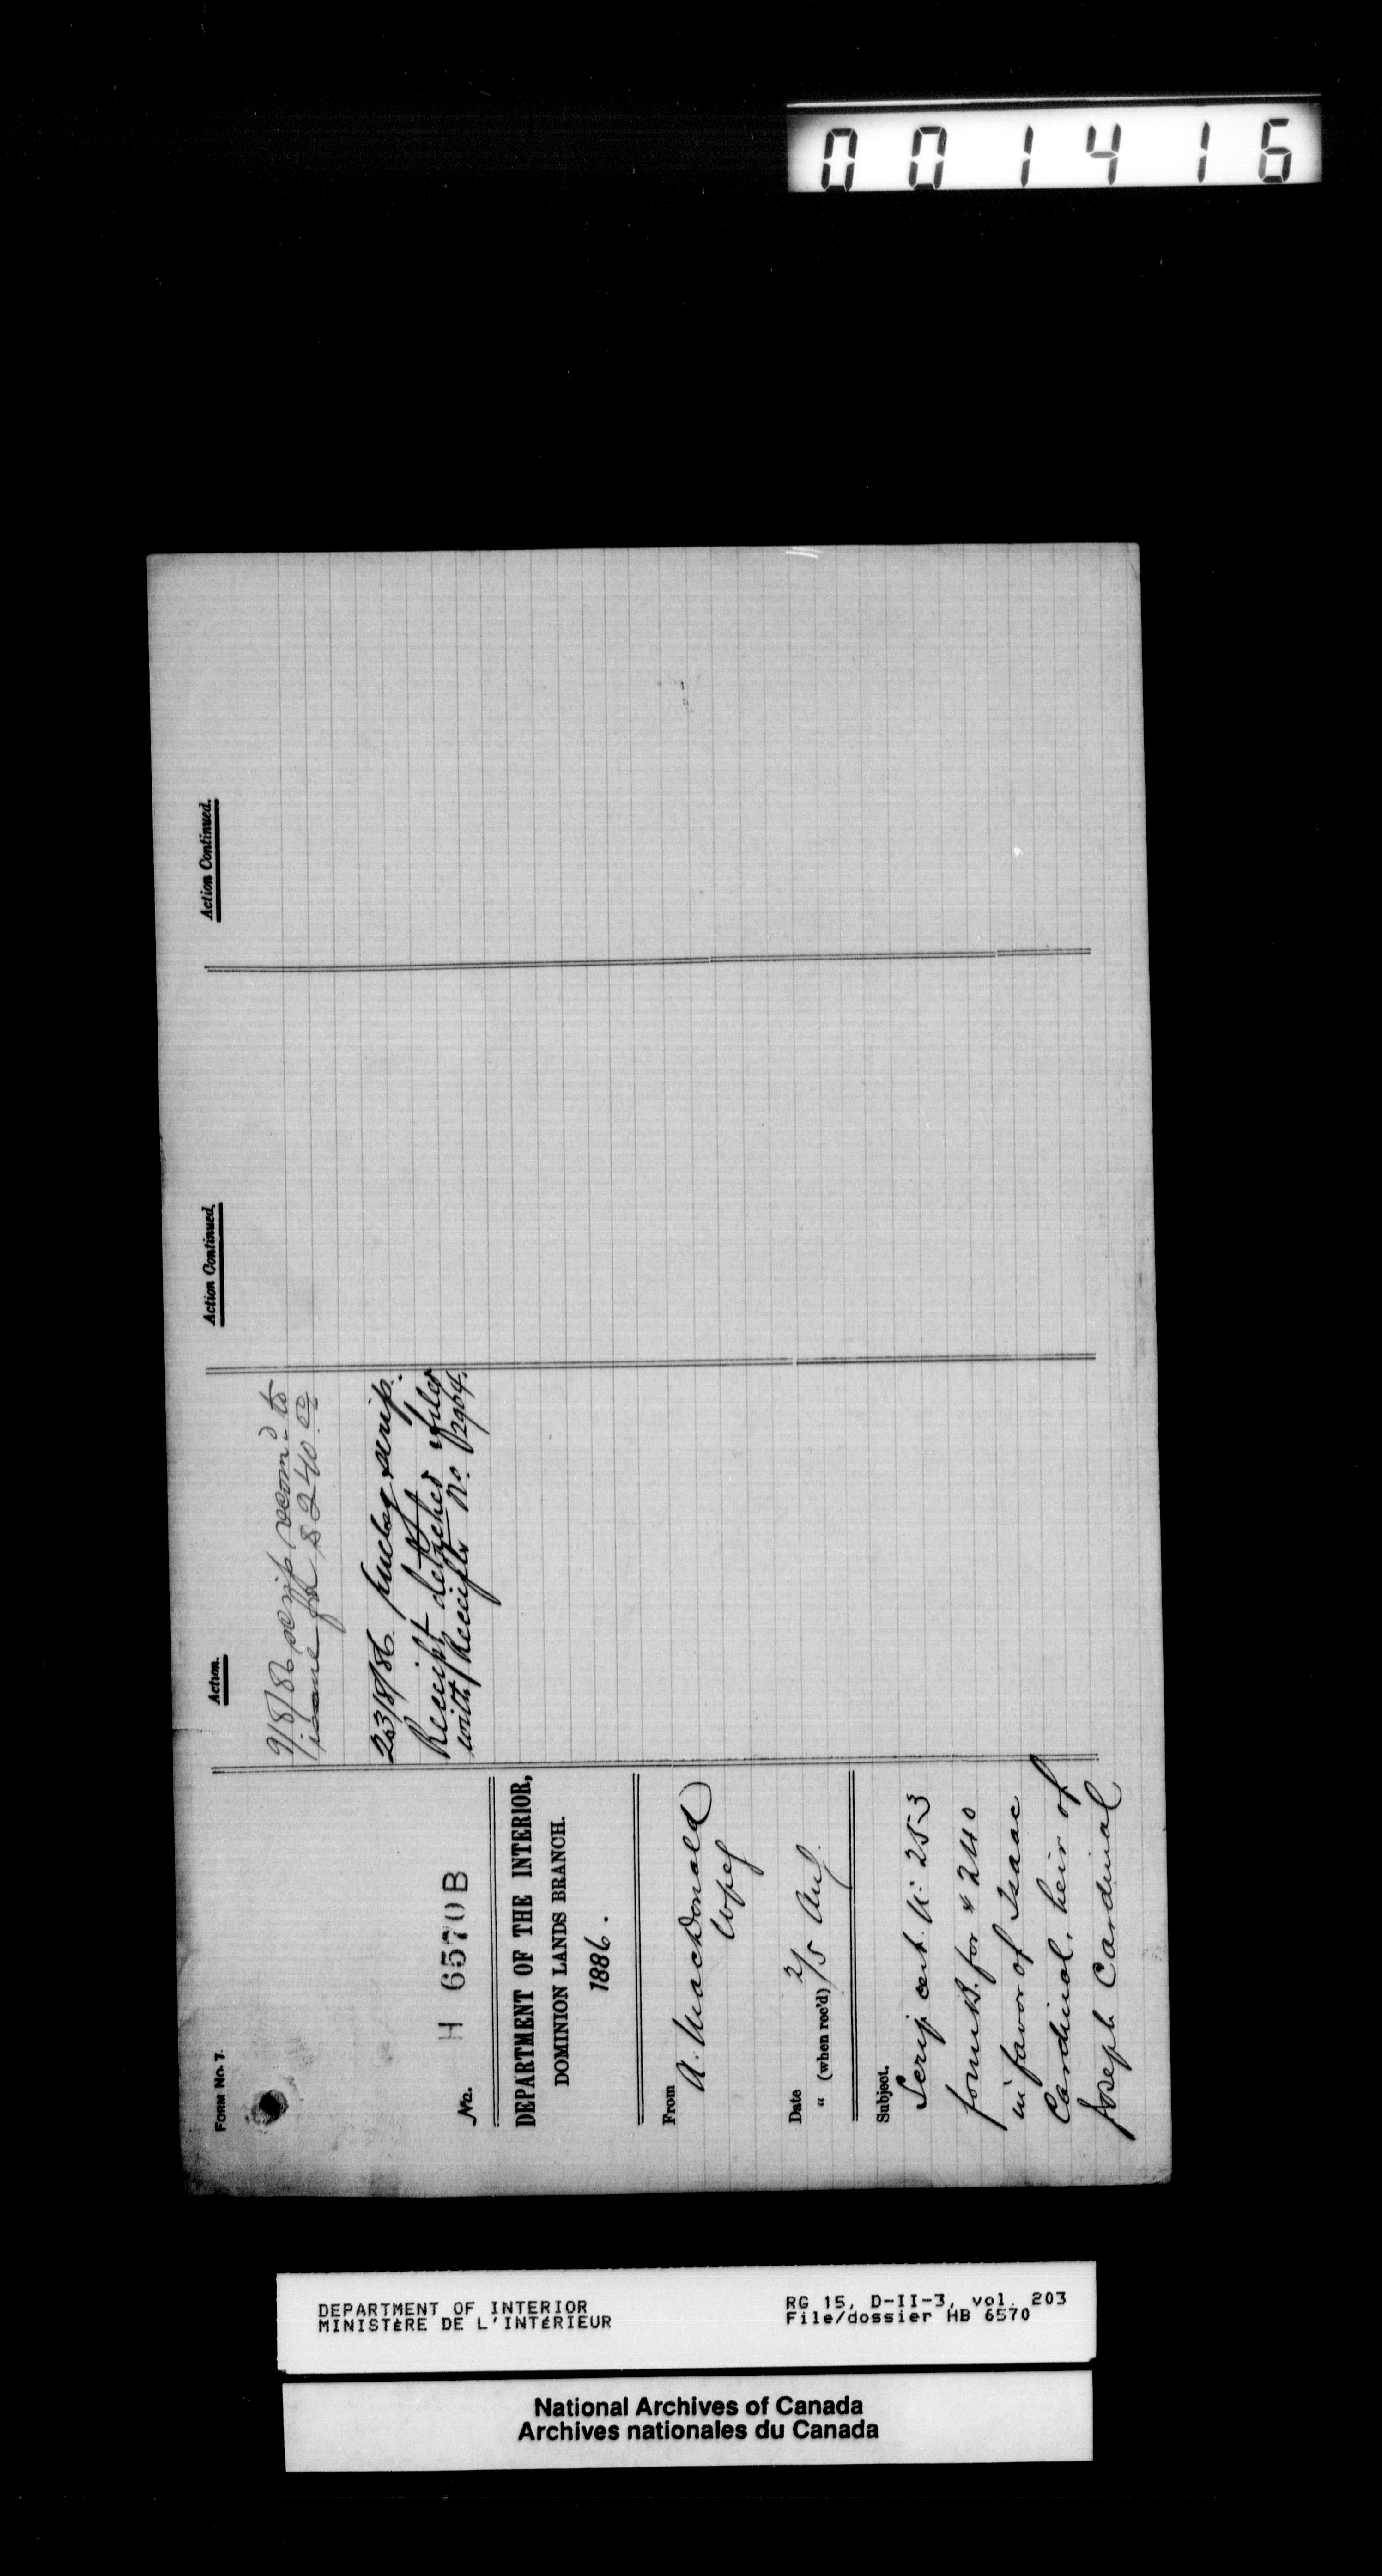 001416
FORM No. 7.
No. H 6570 B
DEPARTMENT OF THE INTERIOR,
DOMINION LANDS BRANCH.
1886.
From
A. MacDonald
Wpeg
Date 2
" (when rec'd) 5 Aug
Subject.
Scrip cert. No: 253
form B. for $ 240
in favor of Isaac
Cardinal, heir of
Joseph Cardinal
Action.
9/8/86 scrip recom'd to
issue for $240.00
23/8/86 scrip.
Receipt detached & filed
with Receipts No. 12964.
Action Continued.
Action Continued.
DEPARTMENT OF INTERIOR
MINISTÈRE DE L'INTÉRIEUR
RG 15, D-II-3, vol. 203
File/dossier HB 6570
National Archives of Canada
Archives nationales du Canada